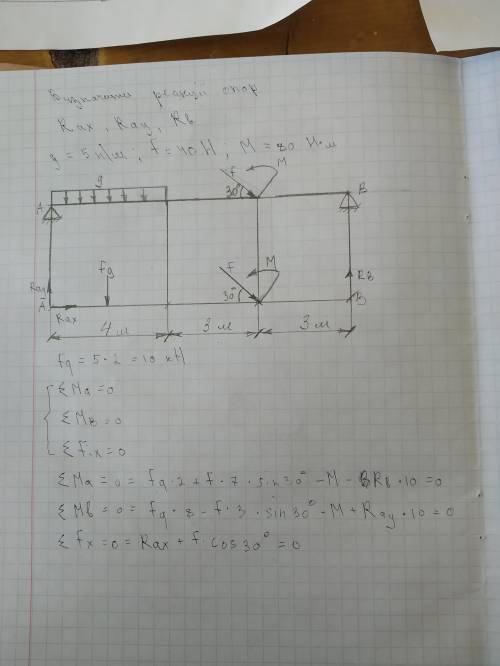 Визначити реакції опор
Rax, Ray, Rb
q = 5 н/м; f = 40 H; M = 80 H·м
q
f
M
30°
A
B
Fq
f
M
30°
Ray
A
Rax
RB
B
4м
3м
3м
fq = 5·2 = 10 кН
ΣMa = 0
ΣMB = 0
Σf·x = 0
ΣMa = 0 = fq·2 + f·7·sin30° - M - RB·10 = 0
ΣMb = 0 = fq·8 - f·3·sin30° - M + Ray·10 = 0
Σfx = 0 = Rax + f·cos30° = 0